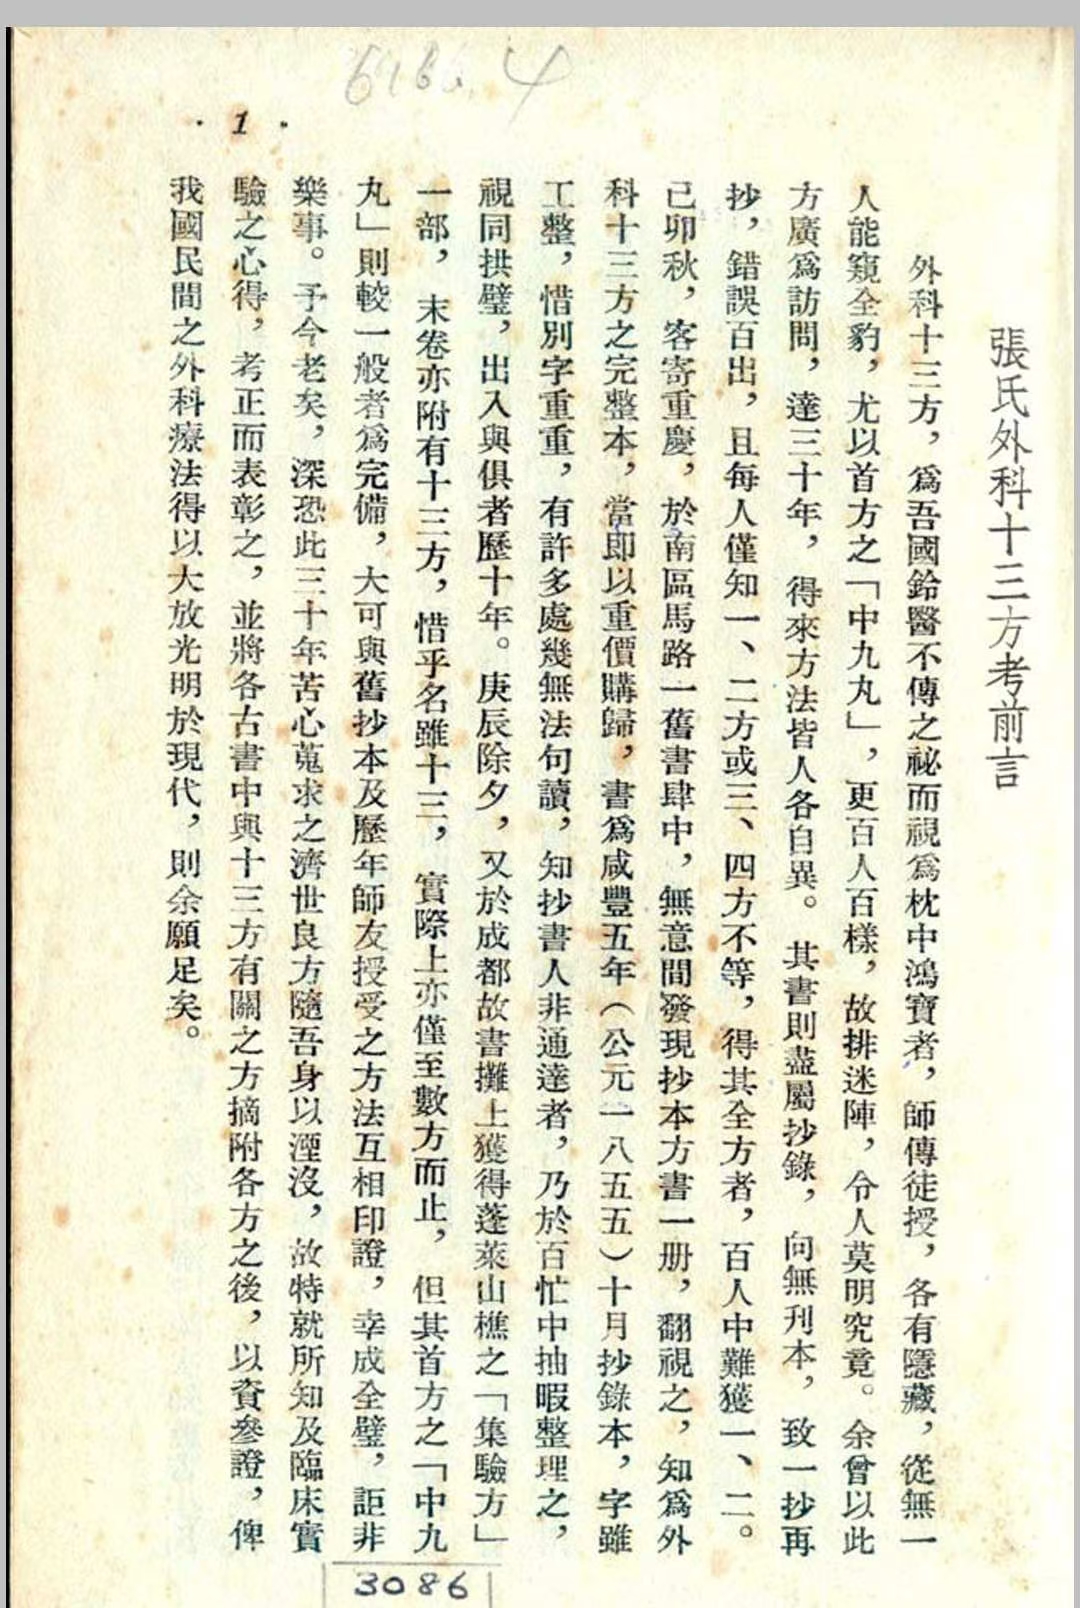 張氏外科十三方考前言
外科十三方，爲吾國鈴醫不傳之祕而視爲枕中鴻寶者，師傳徒授，各有隱藏，從無一
人能窺全豹，尤以首方之「中九丸」，更百人百樣，故排迷陣，令人莫明究竟。余曾以此
方廣爲訪問，達三十年，得來方法皆人各自異。其書則盡屬抄錄，向無刊本，致一抄再
抄，錯誤百出，且每人僅知一、二方或三、四方不等，得其全方者，百人中難獲一、二。
己卯秋，客寄重慶，於南區馬路一舊書肆中，無意間發現抄本方書一册，翻視之，知爲外
科十三方之完整本，當即以重價購歸，書爲咸豐五年（公元一八五五）十月抄錄本，字雖
工整，惜別字重重，有許多處幾無法句讀，知抄書人非通達者，乃於百忙中抽暇整理之，
視同拱璧，出入與俱者歷十年。庚辰除夕，又於成都故書攤上獲得蓬萊山樵之「集驗方」
一部，末卷亦附有十三方，惜乎名雖十三，實際上亦僅至數方而止，但其首方之「中九
丸」則較一般者爲完備，大可與舊抄本及歷年師友授受之方法互相印證，幸成全璧，詎非
樂事。予今老矣，深恐此三十年苦心蒐求之濟世良方隨吾身以湮沒，故特就所知及臨床實
驗之心得，考正而表彰之，並將各古書中與十三方有關之方摘附各方之後，以資參證，俾
我國民間之外科療法得以大放光明於現代，則余願足矣。
· 1 ·
3086